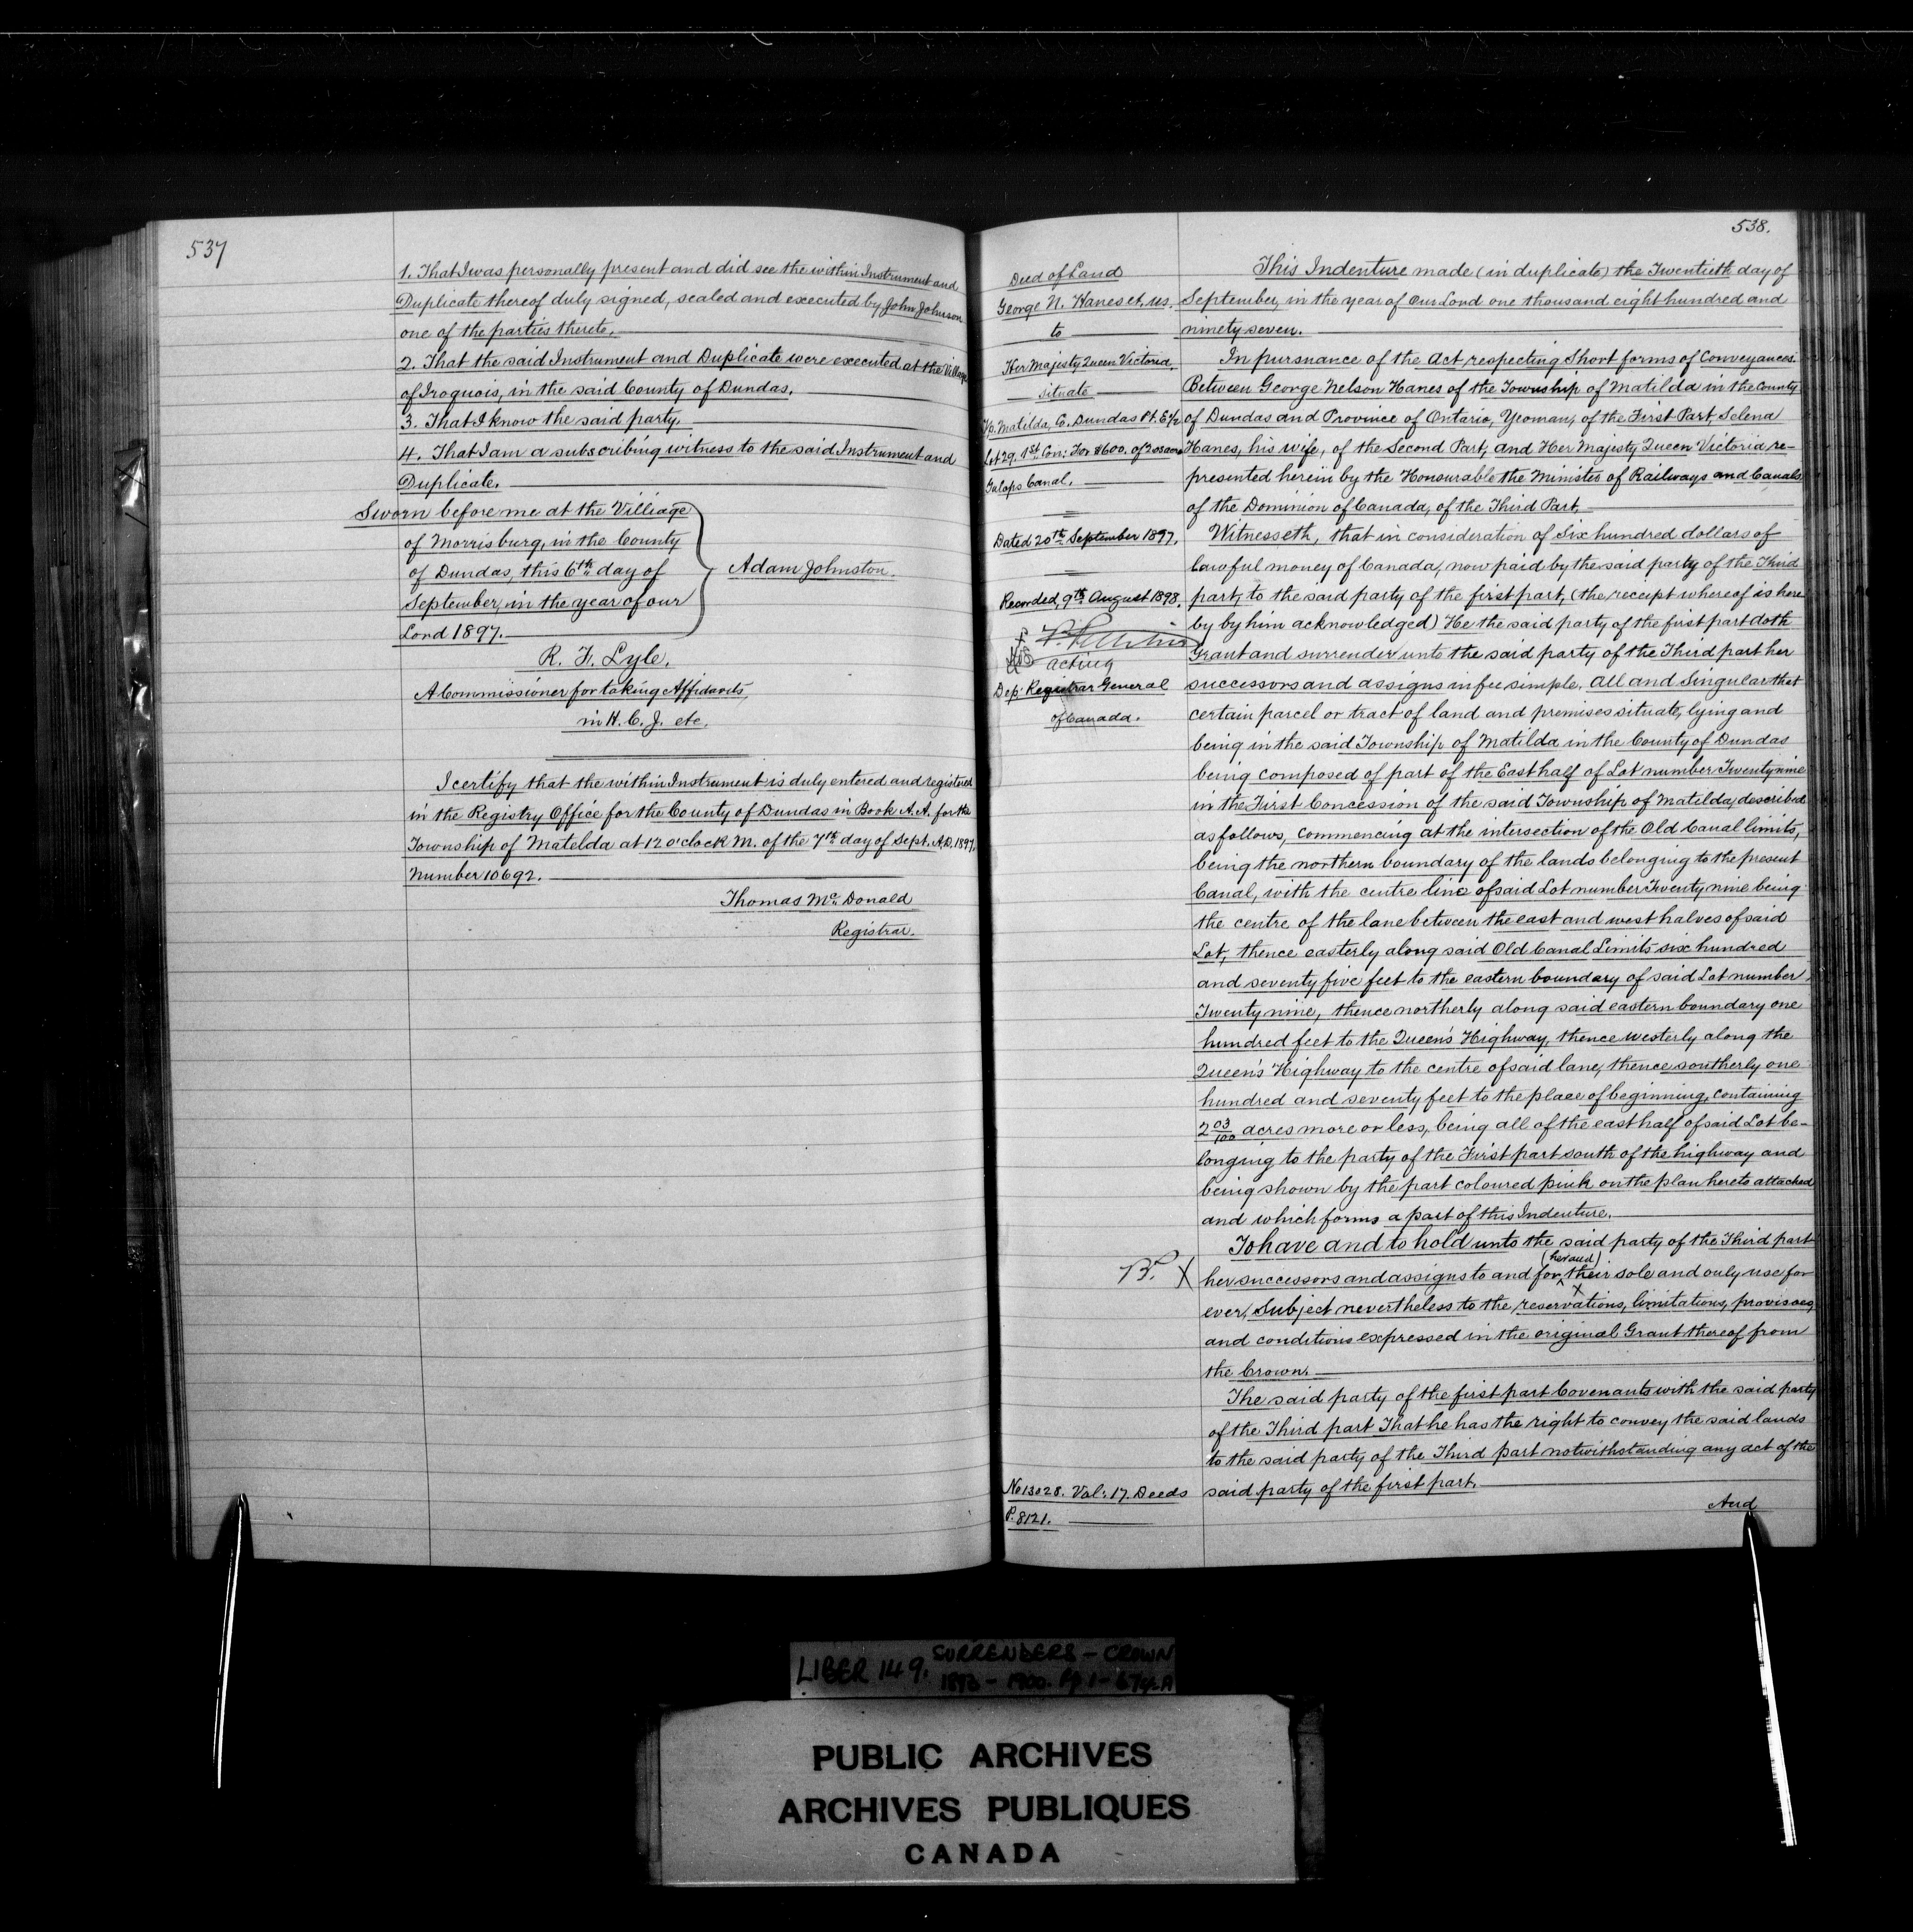 537
1. That I was personally present and did see the within Instrument and
Duplicate thereof duly signed, sealed and executed by John Johnson
one of the parties thereto.
2. That the said Instrument and Duplicate were executed at the Village
of Iroquois, in the said County of Dundas.
3. That I know the said party.
4. That I am a subscribing witness to the said Instrument and
Duplicate.
Sworn before me at the Villiage
of Morrisburg, in the County
of Dundas, this 6th day of
September, in the year of our
Lord 1897.
Adam Johnston.
R. F. Lyle.
A Commissioner for taking Affidavits,
in H. C. J. etc.
I certify that the within Instrument is duly entered and registered
in the Registry Office for the County of Dundas in Book A.A. for the
Township of Matelda at 12 o'clock M. of the 7th day of Sept. A.D. 1897.
Number 10692.
Thomas Mc Donald
Registrar.
538.
Deed of Land
George N. Hanes et. us.
to
Her Majesty Queen Victoria,
situate
Tp. Matilda, C. Dundas Pt. E 1/2
Lot 29. 1st Con: For $600. of 2.03 acres
Galops Canal.
Dated 20th September 1897.
Recorded, 9th August 1898.
acting
Dep: Registrar General
of Canada.
This Indenture made (in duplicate) the Twentieth day of
September, in the year of Our Lord one thousand eight hundred and
ninety seven.
In pursuance of the Act respecting Short forms of Conveyances:
Between George Nelson Hanes of the Township of Matilda in the County
of Dundas and Province of Ontario, Yeoman, of the First Part, Selena
Hanes, his wife, of the Second Part, and Her Majesty Queen Victoria, re-
presented herein by the Honourable the Minister of Railways and Canals
of the Dominion of Canada, of the Third Part,
Witnesseth, that in consideration of Six hundred dollars of
lawful money of Canada, now paid by the said party of the Third
part, to the said party of the first part, (the receipt whereof is here
by by him acknowledged) He the said party of the first part doth
Grant and surrender unto the said party of the Third part her
successors and assigns in fee simple. All and Singular that
certain parcel or tract of land and premises situate, lying and
being in the said Township of Matilda in the County of Dundas
being composed of part of the East half of Lot number Twenty nine
in the First Concession of the said Township of Matilda, described
as follows, Commencing at the intersection of the Old Canal limits,
being the northern boundary of the lands belonging to the present
Canal, with the centre line of said Lot number Twenty nine being
the centre of the lane between the east and west halves of said
Lot, thence easterly along said Old Canal Limits six hundred
and seventy five feet to the eastern boundary of said Lot number
Twenty nine, thence northerly along said eastern boundary one
hundred feet to the Queen's Highway, thence westerly along the
Queen's Highway to the centre of said lane, thence southerly one
hundred and seventy feet to the place of beginning, containing
2 03/100 acres more or less, being all of the east half of said Lot be-
longing to the party of the First part south of the highway and
being shown by the part coloured pink on the plan hereto attached
and which forms a part of this Indenture.
To have and to hold unto the said party of the Third part
(her and)
X her successors and assigns to and for their sole and only use for
ever, Subject nevertheless to the reservations, limitations, provisoes,
and conditions expressed in the original Grant thereof from
the Crown.
The said party of the first part Covenants with the said party
of the Third part That he has the right to convey the said lands
to the said party of the Third part notwithstanding any act of the
said party of the first part.
And
No 13028. Vol: 17. Deeds
P. 8121.
LIBER 149. SURRENDERS - CROWN
PUBLIC ARCHIVES
ARCHIVES PUBLIQUES
CANADA